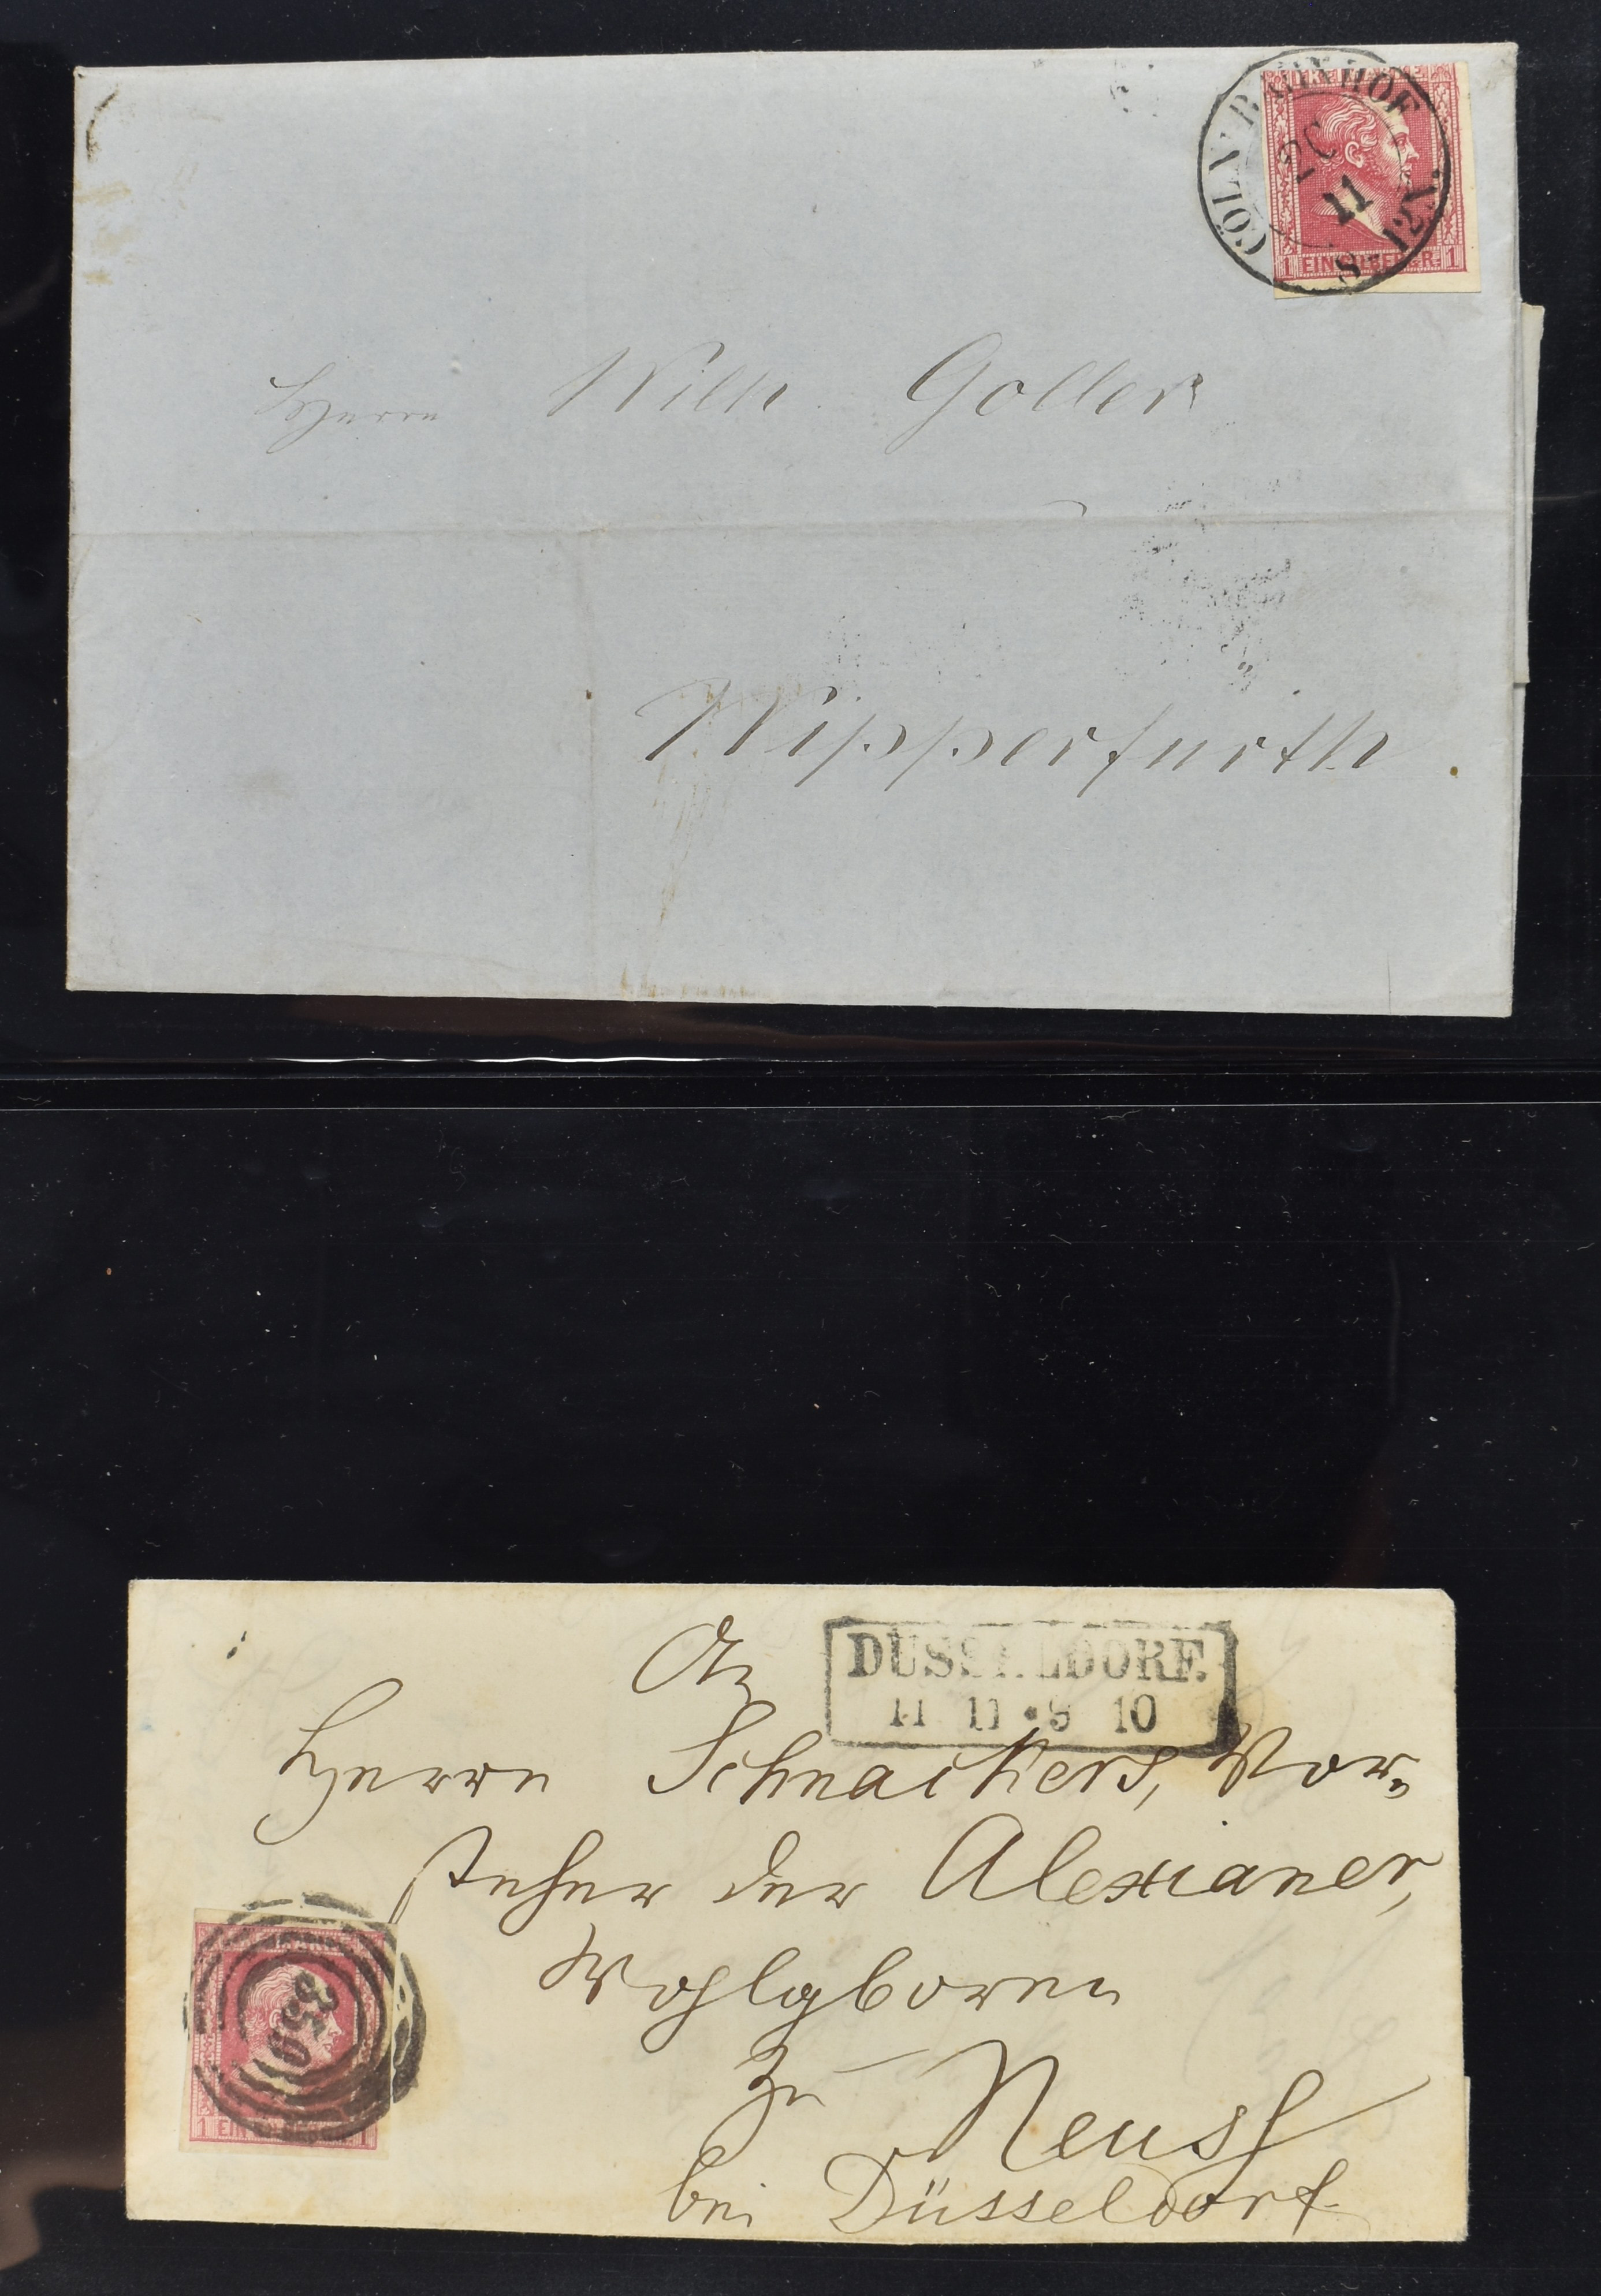 CÖLN BAHNHOF
11
8-12N.
1 EIN SILBERGR. 1
Herrn Wilh. Goller
Wipperfürth
DÜSSELDORF.
11 11 • 9 10
An
Herrn Schnackers, Vor-
steher der Alexianer,
Wohlgeboren
zu Neuss
bei Düsseldorf
350
1 EIN 1